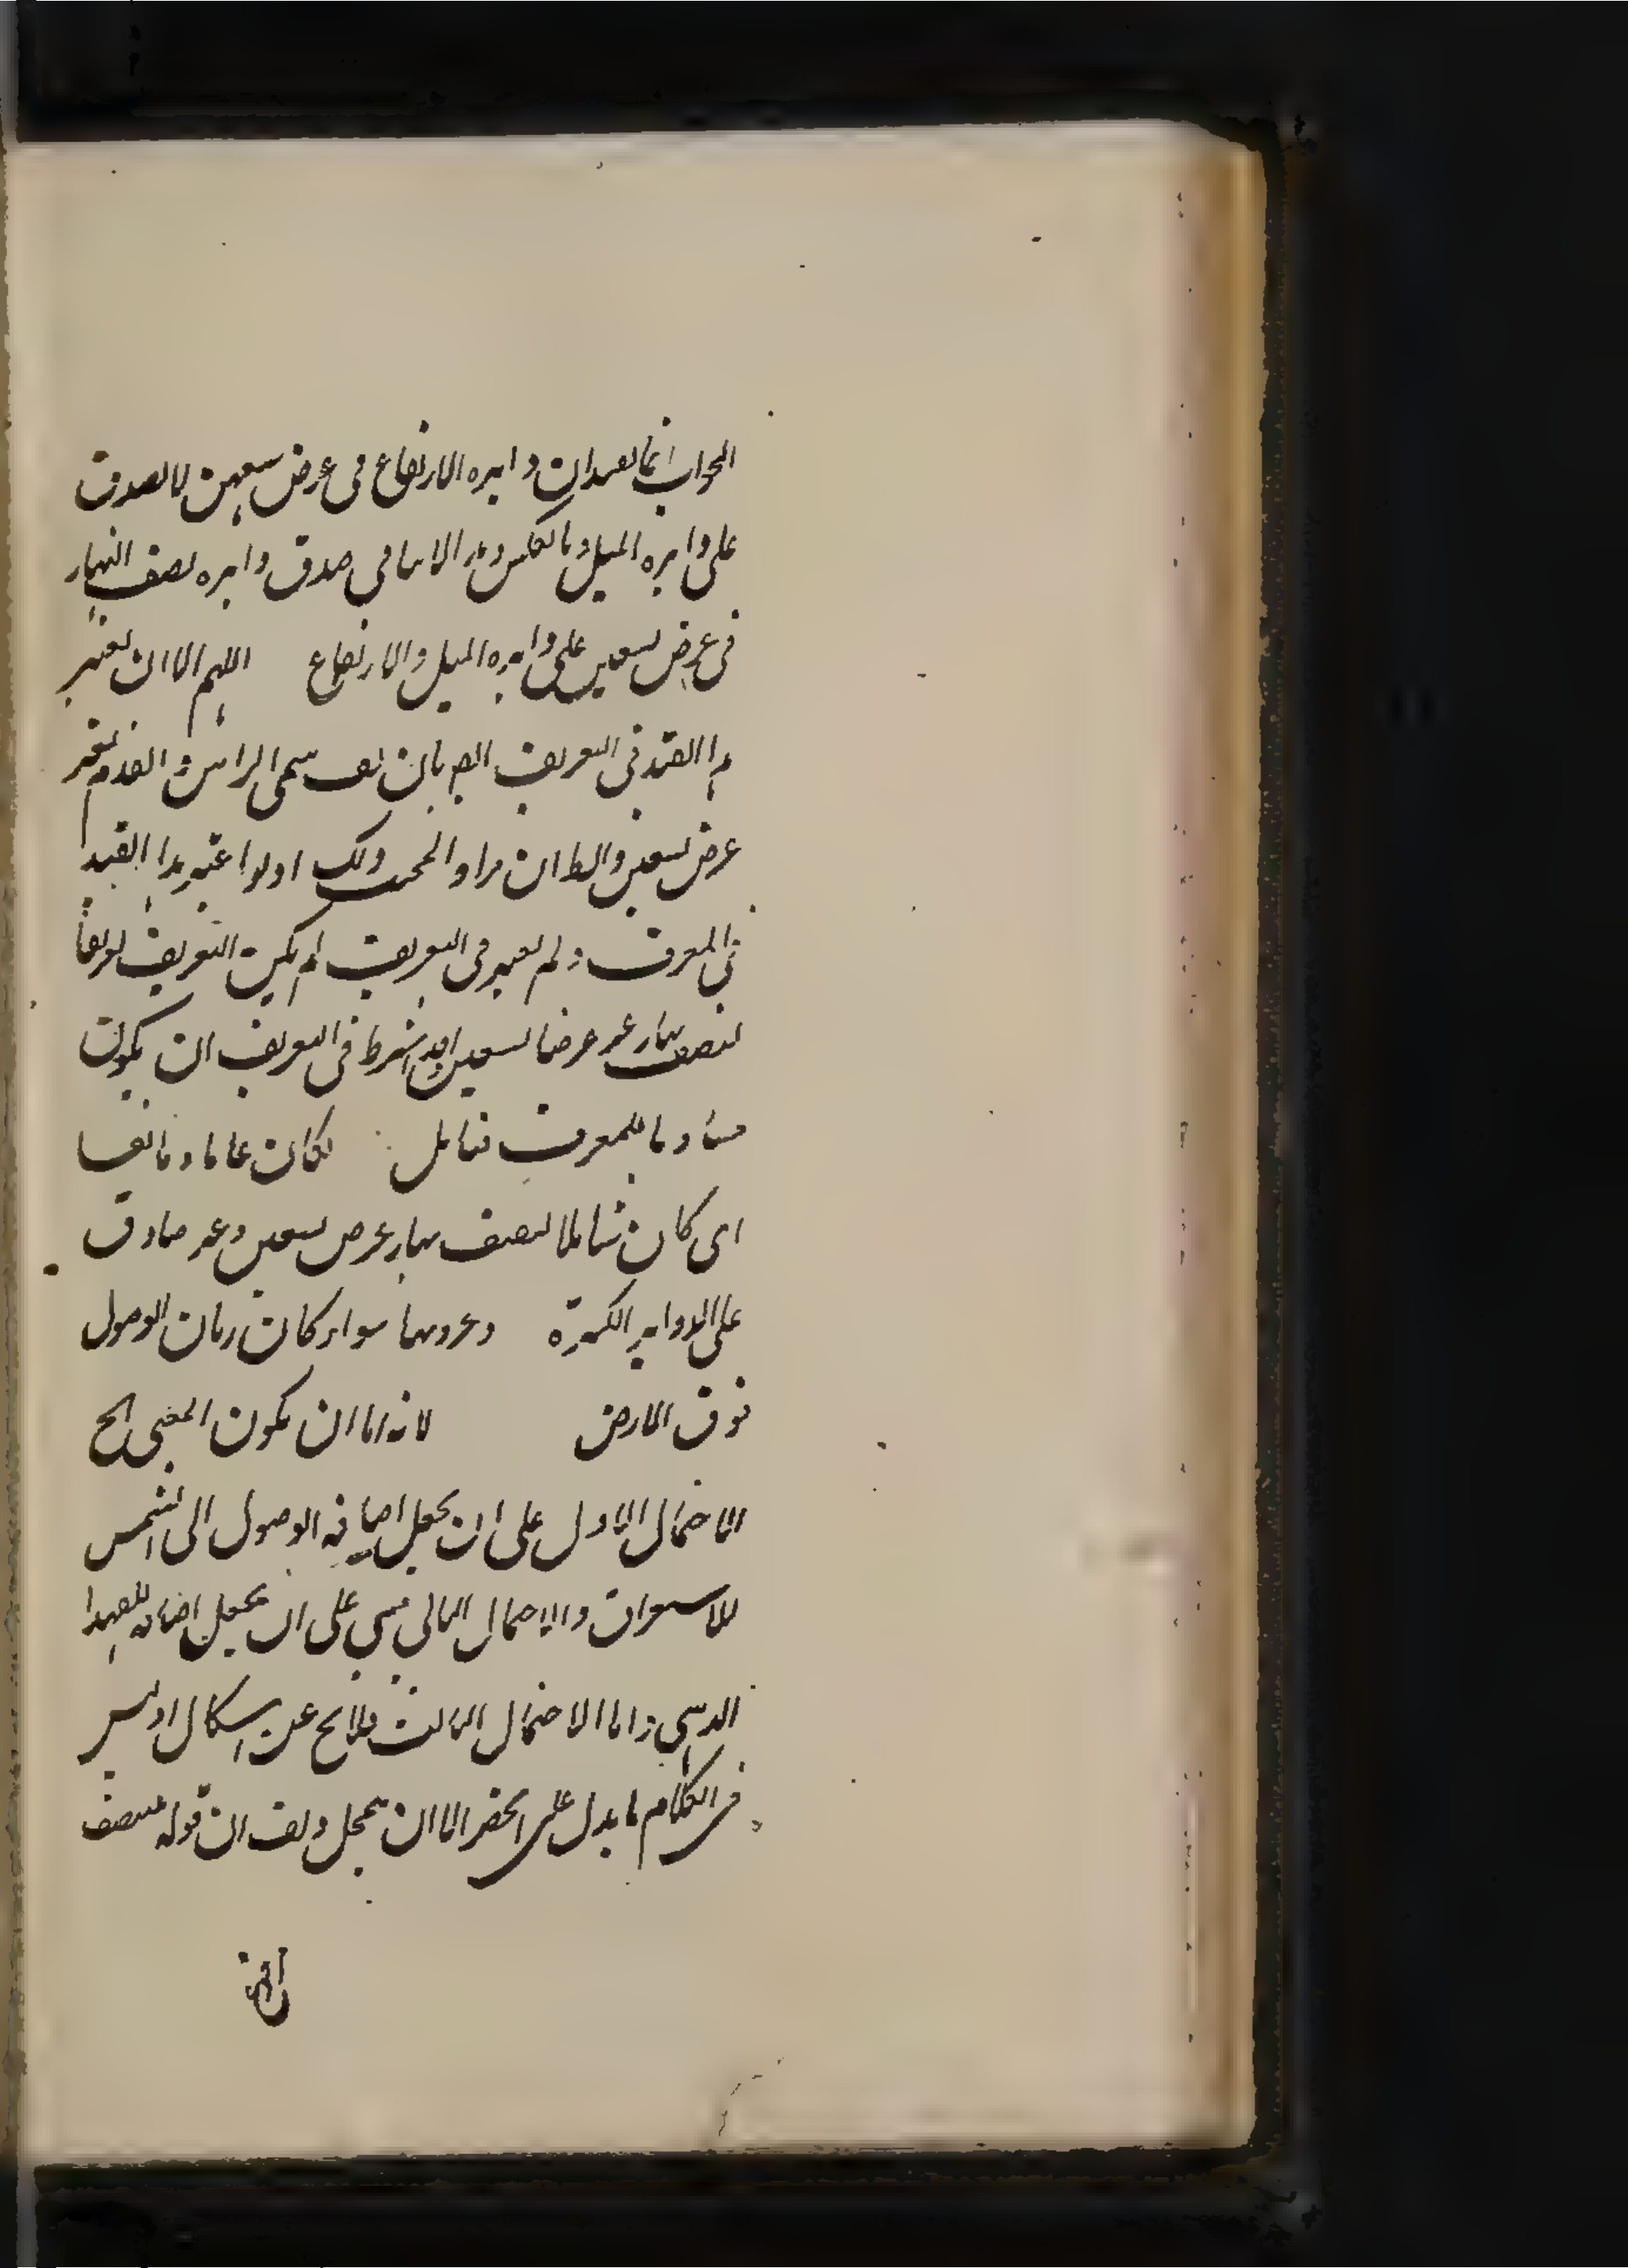 الجواب انما يفيد ان دايره الارتفاع فى عرض تسعين لا تصدق
على دايره الميل وبالعكس وهذا لا ينافى صدق دايره نصف النهار
فى عرض تسعين على دايره الميل والارتفاع اللهم الا ان يعتبر
هذا القيد فى التعريف ايض بان يق سمتى الراس والقدم لغير
عرض تسعين والظ ان مراد المحشى ذلك اذ لو اعتبر هذا القيد
فى المعرف ولم يعتبر فى التعريف لم يكن التعريف تعريفا
لنصف نهار غير عرض تسعين اذ شرط فى التعريف ان يكون
مساويا للمعرف فتامل لكان جامعا ومانعا
اى كان شاملا لنصف نهار عرض تسعين وغير صادق
على الدواير الكثيرة وغروبها سواء كان زمان الوصول
فوق الارض لانه اما ان يكون المعنى الخ
الاحتمال الاول على ان يجعل اضافه الوصول الى الشمس
للاستغراق والاحتمال الثانى مبنى على ان يجعل اضافته للعهد
الذهنى واما الاحتمال الثالث فلا يخ عن اشكال اذ ليس
فى الكلام ما يدل على الحصر الا ان يتمحل ويق ان قوله منتصف